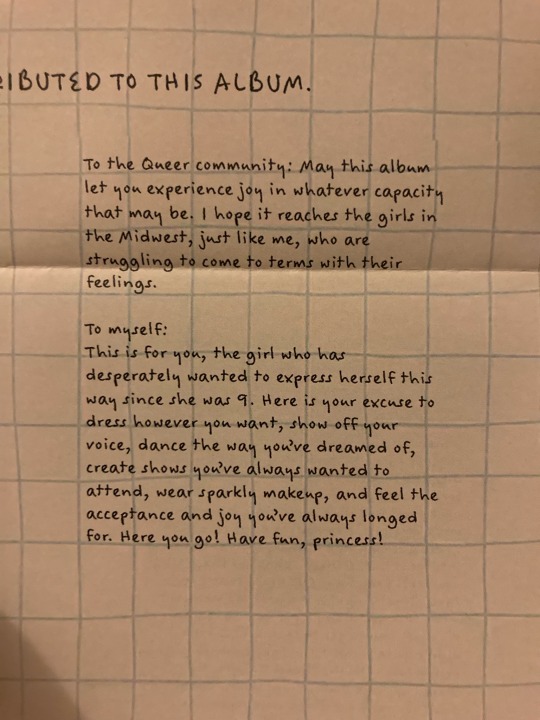 TO THIS ALBUM.
To the Queer community: May this album
let you experience joy in whatever capacity
that may be. I hope it reaches the girls in
the Midwest, just like me, who are
struggling to come to terms with their
feelings.
To myself:
This is for you, the girl who has
desperately wanted to express herself this
way since she was 9. Here is your excuse to
dress however you want, show off your
voice, dance the way you've dreamed of,
create shows you've always wanted to
attend, wear sparkly makeup, and feel the
acceptance and joy you've always longed
for. Here you go! Have fun, princess!